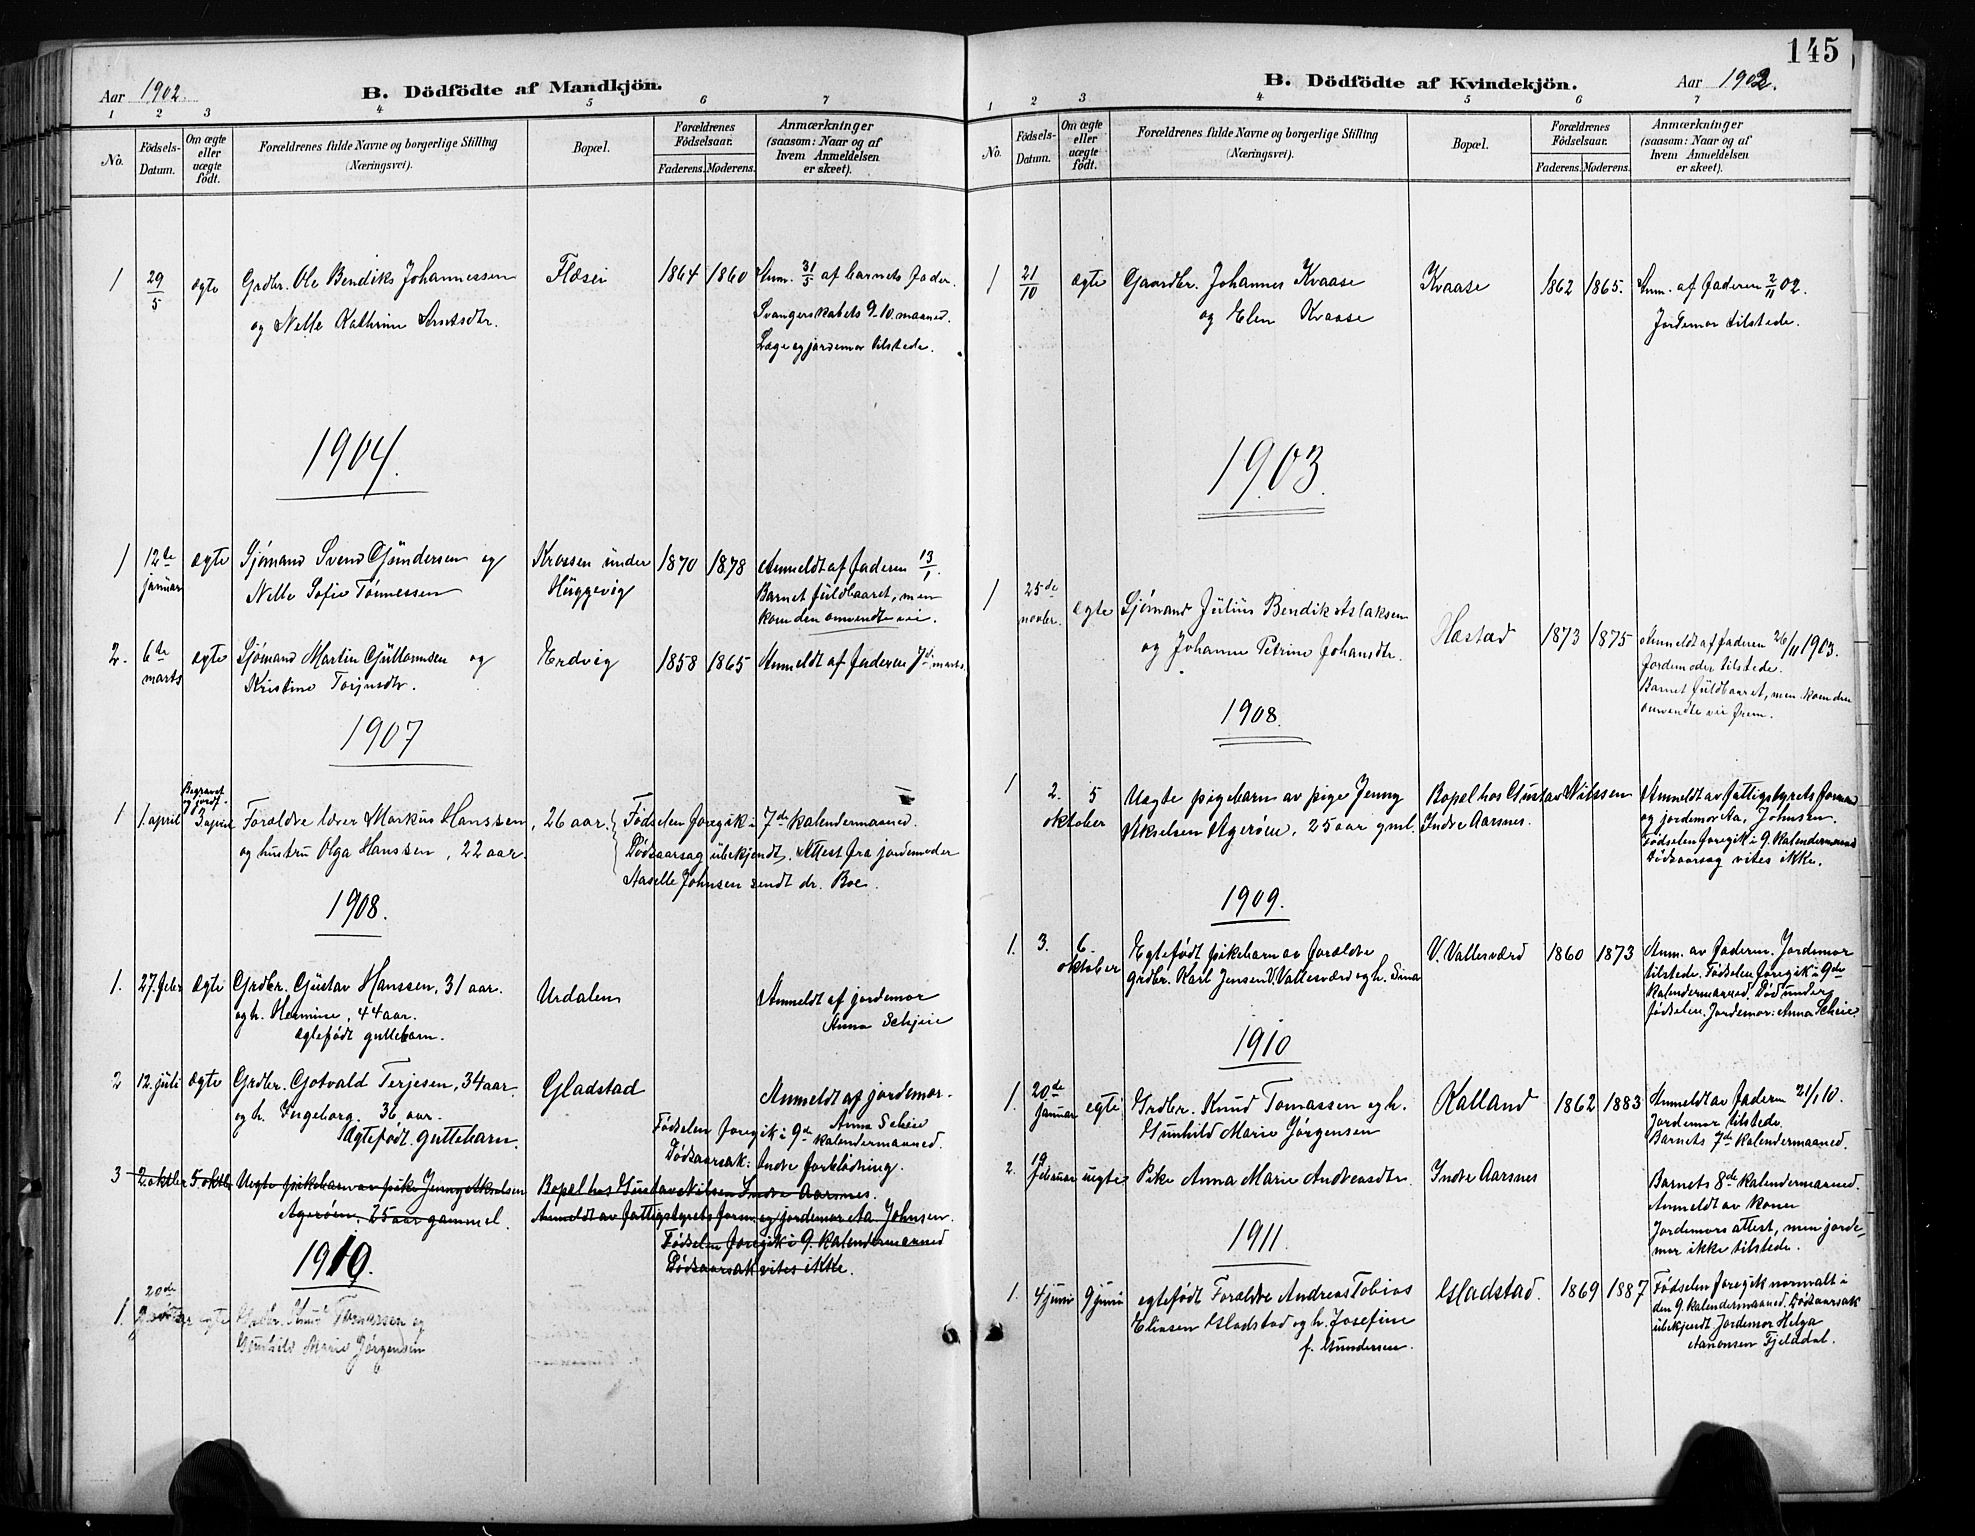 Aar 1902.
B. Dödfödte af Mandkjön.
1 2 3 4 5 6 7
No.
Födsels-
Datum.
Om ægte
eller
uægte
født.
Forældrenes fulde Navne og borgerlige Stilling
(Næringsvei).
Bopæl.
Forældrenes
Födselsaar.
Faderens. Moderens.
Anmærkninger
(saasom: Naar og af
hvem Anmeldelsen
er skeet).
1 29/5 ægte Grdbr. Ole Bendiks Johannessen Flæsei 1864 1860 Anm. 31/5 af barnets fader.
og Nelle Kathrine Svangerskabets 9.10. maaned.
Læge og jordemor tilstede.
1904.
1 12te ægte Sjömand Svend Gundersen og Krossen under 1870 1878 Anmeldt af faderen 13/1.
januar Nelle Sofie Tönnessen Huggevig Barnet fuldbaaret, men
kom den omvendte vei.
2. 6te ægte Sjömand Martin Guttormsen og Erdvig 1858 1865 Anmeldt af faderen 7de marts
marts Kristine Terjesdtr.
1907
Begravet
og jordf.
1 1. april 3 april Forældre lærer Markus Hanssen, 26 aar. Fødselen foregik i 7de kalendermaaned.
og hustru Olga Hanssen, 22 aar. Dödsaarsag ubekjendt. Attest fra jordemoder
Johnsen sendt dr. Boe.
1908.
1. 27. febr ægte Grdbr. Gustav Hanssen, 31 aar. Urdalen Anmeldt af jordemor
og h. Hermine, 44 aar. Anna Schjeie
ægtefödt guttebarn.
2 12. juli ægte Grdbr. Gotvald Terjesen, 34 aar. Gladstad Anmeldt af jordemor.
og h. Ingeborg, 36 aar. Anna Scheie
Fødselen foregik i 9de kalendermaaned.
Ægtefödt guttebarn.
Dødsaarsak: Indre forblødning.
3 2. oktbr 5 oktbr Uegte pikebarn av pike Jenny Akselsen Bopel hos Gustav Nilsen Indre Aarsnes.
Agerøen, 25 aar gammel. Anmeldt av fattigstyrets form. og jordemor Aa. Johnsen.
Fødselen foregik i 9. kalendermaaned
Dødsaarsak vites ikke.
1910.
20de
1. egte Grdbr. Knud Tomassen og
Gunhild Marie Jørgensen
145
B. Dödfödte af Kvindekjön.
Aar 1902.
1 2 3 4 5 6 7
No.
Födsels-
Datum.
Om ægte
eller
uægte
født.
Forældrenes fulde Navne og borgerlige Stilling
(Næringsvei).
Bopæl.
Forældrenes
Födselsaar.
Faderens. Moderens.
Anmærkninger
(saasom: Naar og af
hvem Anmeldelsen
er skeet).
1 21/10 ægte Gaardbr. Johannes Kvaase Kvaase 1862 1865. Anm. af faderen 2/11 02.
og Elen Kvaase Jordemor tilstede.
1903.
1 25de egte Sjömand Julius Bendik Aslaksen Hæstad 1873 1875 Anmeldt af faderen 26/11 1903.
novbr. og Johanne Petrine Johansdtr. Jordemoder tilstede.
Barnet fuldbaaret, men kom den
omvendte vei frem.
1908.
1 2. 5 Uegte pigebarn av pige Jenny Bopel hos Gustav Nilssen Anmeldt av fattigstyrets formand
oktober Akselsen Agerøen, 25 aar gml. Indre Aarsnes. og jordemor Aa. Johnsen.
Fødselen foregik i 9. kalendermaaned
Dødsaarsag vites ikke.
1909.
1. 3. 6. Egtefødt pikebarn av foreldre V. Vallesværd 1860 1873 Anm. av faderen. Jordemor
oktober grdbr. Karl Jensen V. Vallesværd og h. Sina tilstede. Fødselen foregik i 9de
kalendermaaned. Død under
fødselen. Jordemor: Anna Scheie.
1910
1. 20de egte Grdbr. Knud Tomassen og h. Kalland 1862 1883 Anmeldt av faderen 21/1 10.
januar Gunhild Marie Jørgensen Jordemor tilstede.
Barnets 7de kalendermaaned.
2. 19 uegte Pike Anna Marie Andreasdtr. Indre Aarsnes Barnets 8de kalendermaaned.
februar Anmeldt av konen
Jordemors attest, men jorde-
mor ikke tilstede.
1911.
1. 4 juni 9 juni egtefødt Foreldre Andreas Tobias Gladstad. 1869 1887 Fødselen foregik normalt i
Eliasen Gladstad og h. Josefine den 9. kalendermaaned. Dødsaarsak
f. Gundersen. ubekjendt Jordemor Helga
Aanonsen Fjelddal.